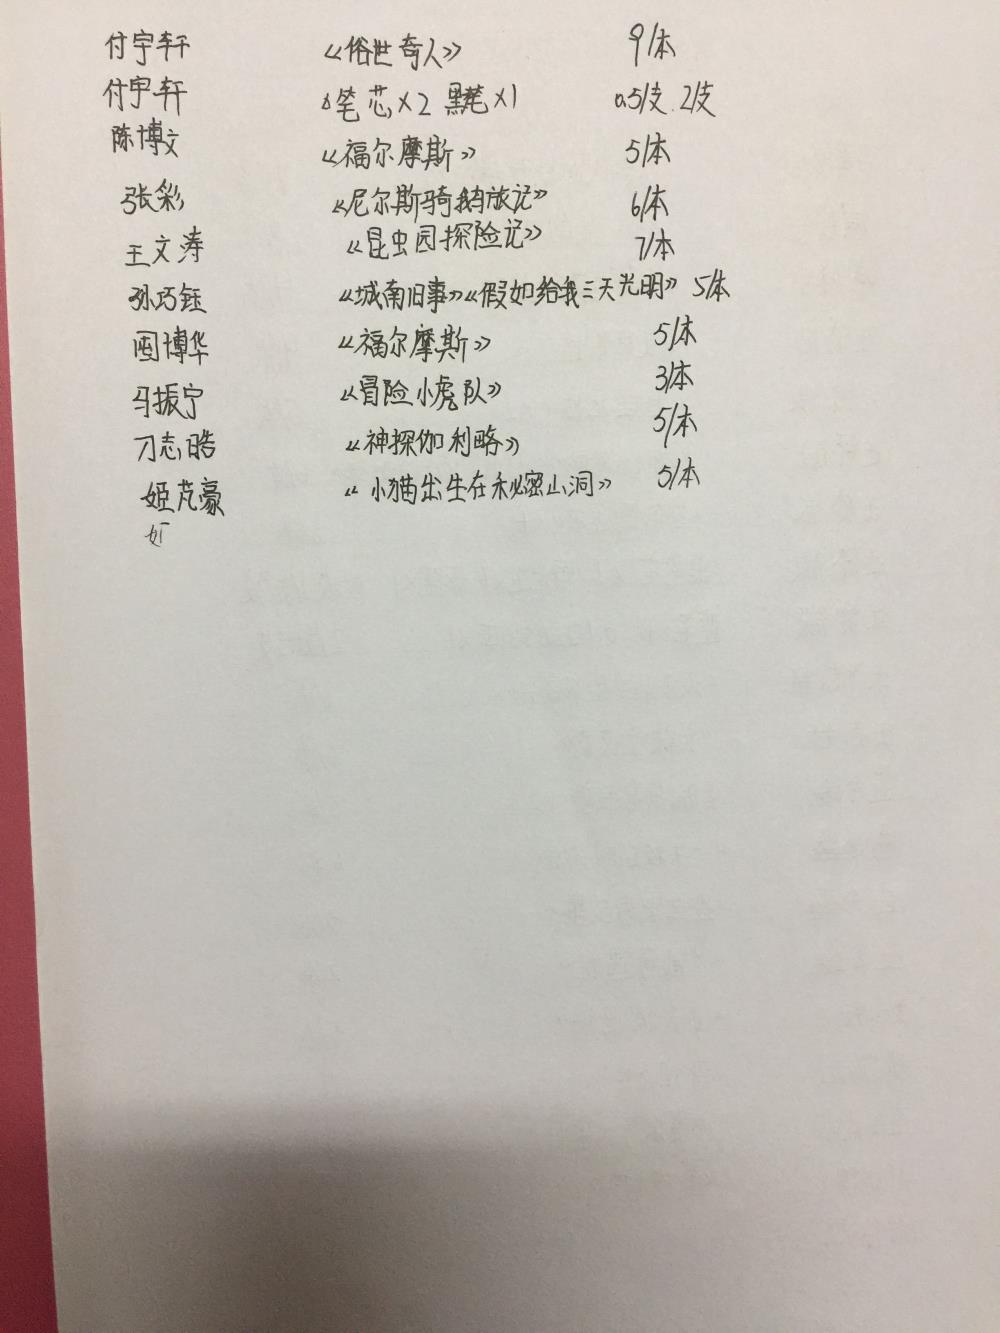 付宇轩 《俗世奇人》 9/本
付宇轩 笔芯×2 黑笔×1 0.5/支 2/支
陈博文 《福尔摩斯》 5/本
张彩 《尼尔斯骑鹅旅记》 6/本
王文涛 《昆虫园探险记》 7/本
孙巧钰 《城南旧事》《假如给我三天光明》 5/本
闾博华 《福尔摩斯》 5/本
马振宁 《冒险小虎队》 3/本
刁志皓 《神探伽利略》 5/本
姬芃豪 《小猫出生在秘密山洞》 5/本